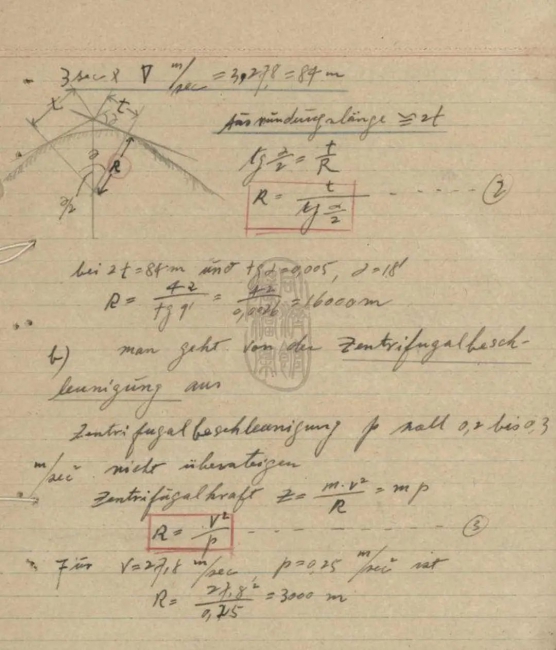 3 sec × V m/sec = 3 × 27,8 = 84 m
t t
α/2
Ausrundungslänge ≅ 2t
tg α/2 = t/R
α R
R = t / tg α/2 - - - - - ②
α/2
bei 2t = 84 m und tg α = 0,005, α = 18'
R = 42 / tg 9' = 42 / = 16000 m
b) man geht von der Zentrifugalbesch-
leunigung aus
Zentrifugalbeschleunigung p soll 0,2 bis 0,3
m/sec² nicht übersteigen
Zentrifugalkraft Z = m·v²/R = mp
R = v²/p - - - - - ③
Für V = 27,8 m/sec p = 0,25 m/sec² ist
R = 27,8²/0,25 = 3000 m